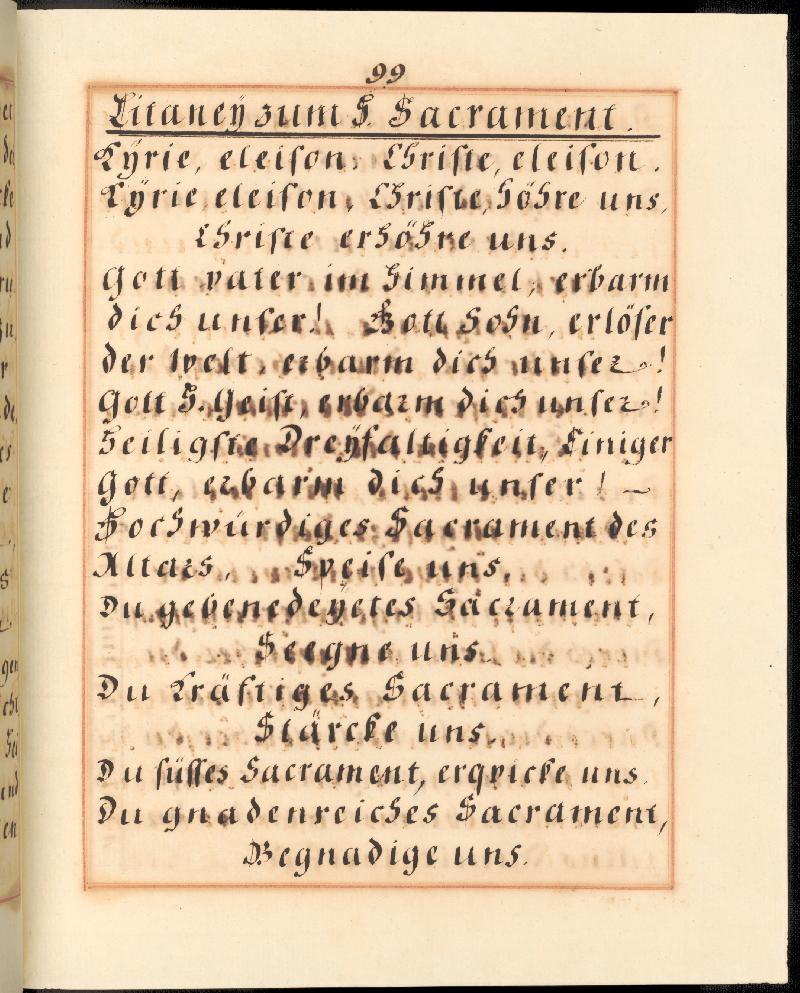 99
Litaney zum H. Sacrament.
Kÿrie, eleison, Christe, eleison.
Kÿrie eleison, Christe, höhre uns,
Christe erhöhre uns.
Gott vater im himmel, erbarm
dich unser! Gott Sohn, erlöser
der welt, erbarm dich unser!
Gott H. Geist, erbarm dich unser!
Heiligste Dreÿfaltigkeit, Einiger
Gott, erbarm dich unser! –
Hochwürdiges Sacrament des
Altars, Speise uns,
Du gebenedeÿetes Sacrament,
Seegne uns.
Du Kräftiges Sacrament,
Stärcke uns.
Du süsses Sacrament, erqvicke uns.
Du gnadenreiches Sacrament,
Begnadige uns.